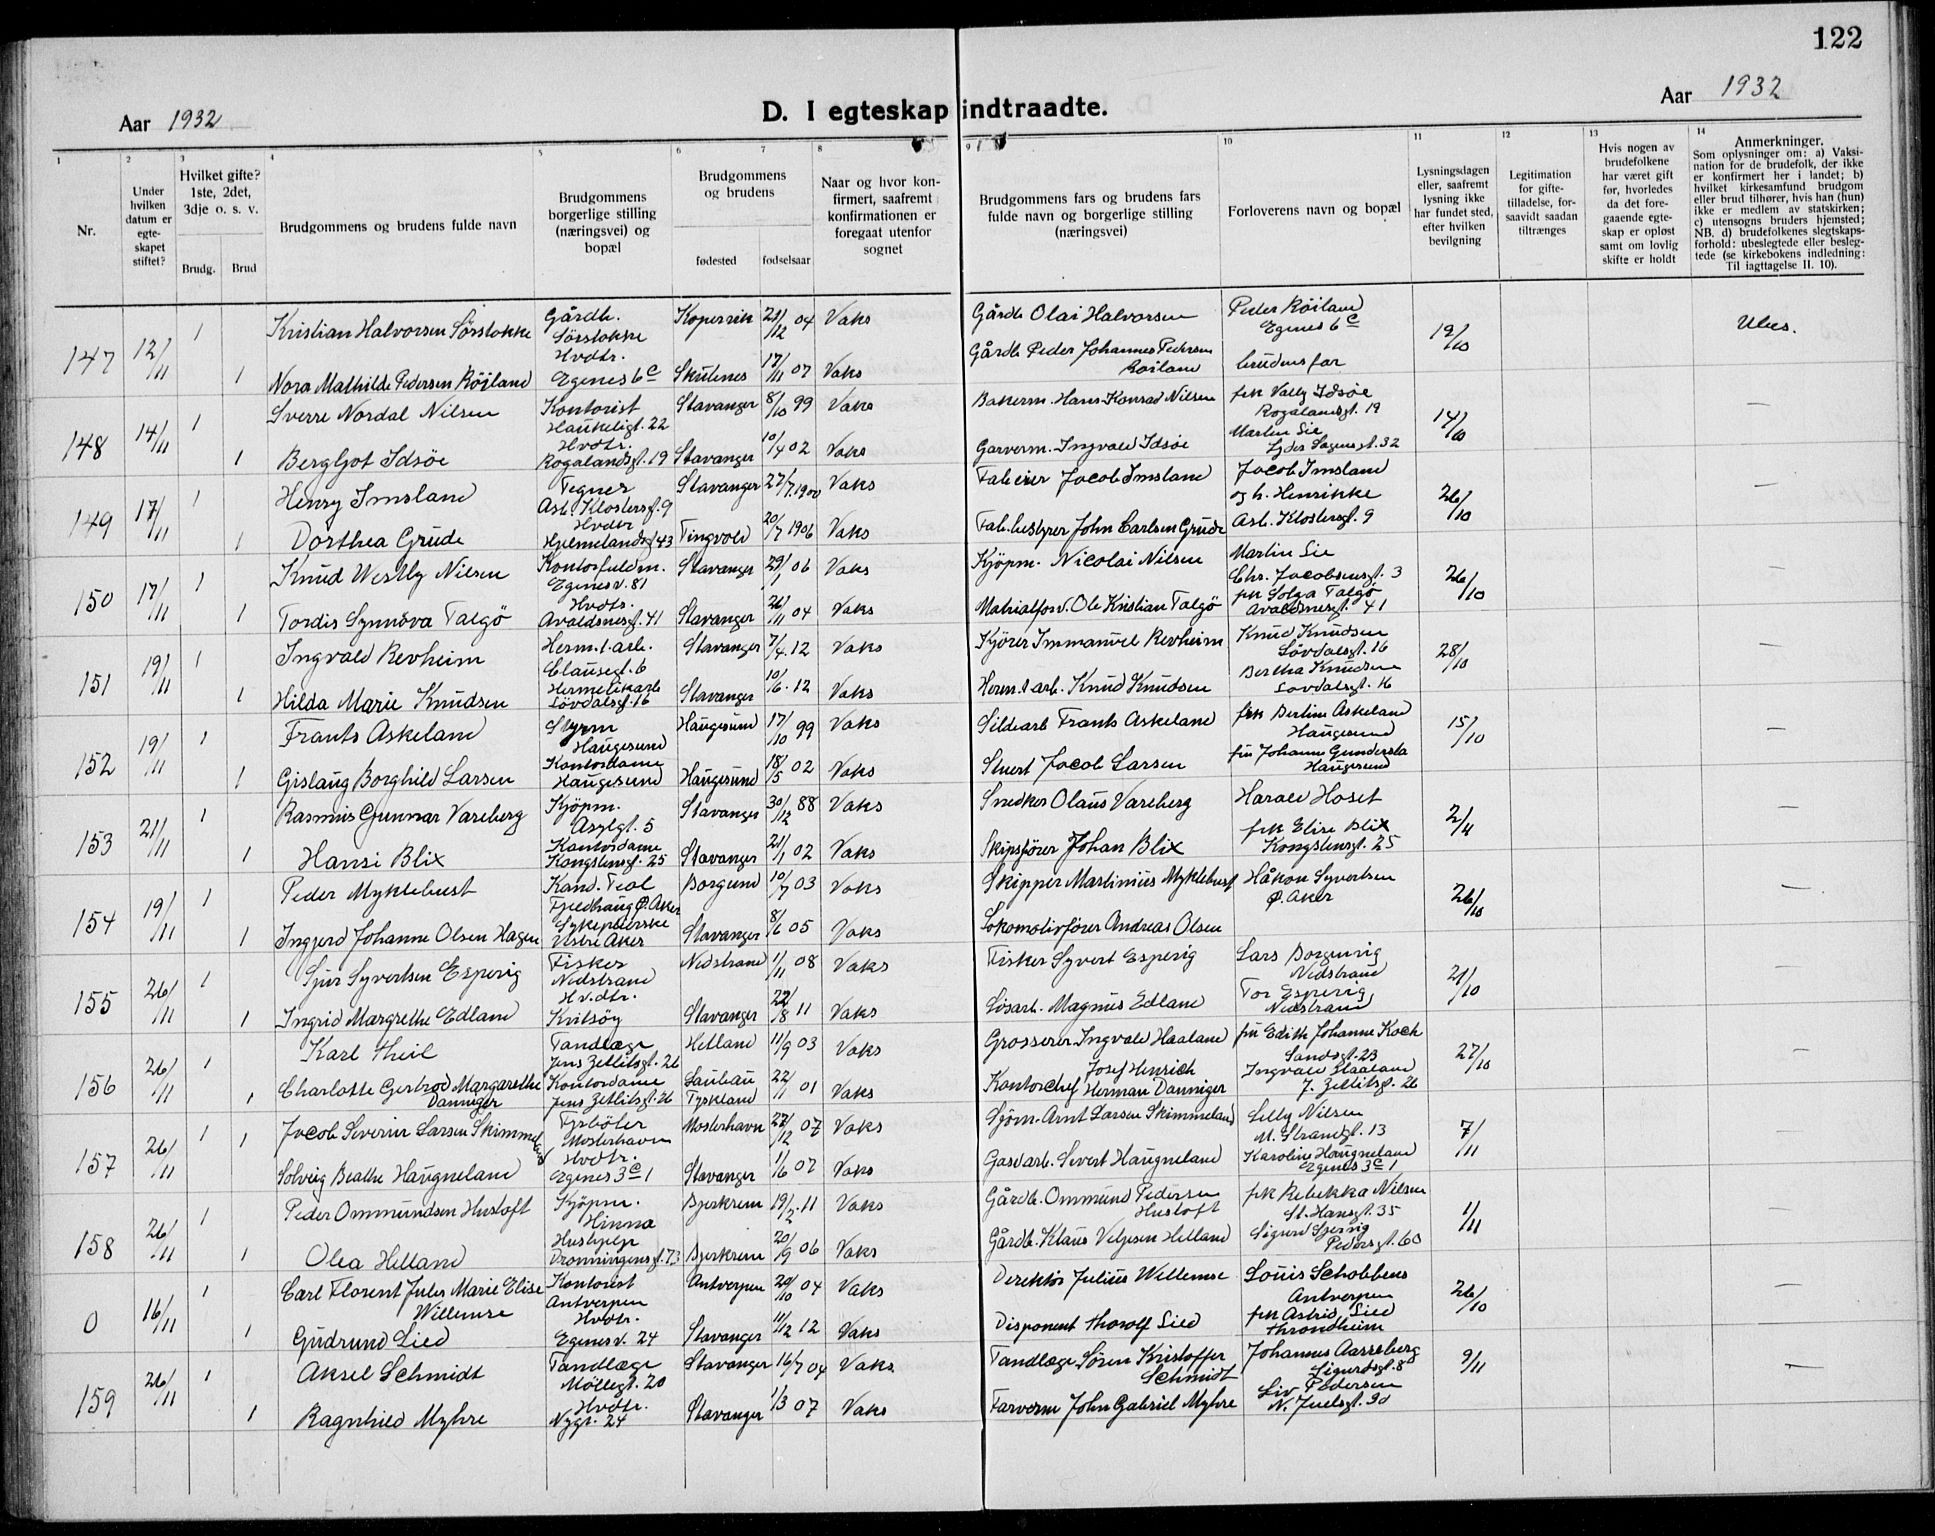 122
Aar 1932
D. I egteskap indtraadte.
Aar 1932
1
2
3
4
5
6
7
8
9
10
11
12
13
14
Nr.
Under hvilken datum er egte-skapet stiftet?
Hvilket gifte? 1ste, 2det, 3dje o. s. v.
Brudg.
Brud
Brudgommens og brudens fulde navn
Brudgommens borgerlige stilling (næringsvei) og bopæl
Brudgommens og brudens
fødested
fødselsaar
Naar og hvor kon-firmert, saafremt konfirmationen er foregaat utenfor sognet
Brudgommens fars og brudens fars fulde navn og borgerlige stilling (næringsvei)
Forloverens navn og bopæl
Lysningsdagen eller, saafremt lysning ikke har fundet sted, efter hvilken bevilgning
Legitimation for gifte-tilladelse, for-saavidt saadan tiltrænges
Hvis nogen av brudefolkene har været gift før, hvorledes da det fore-gaaende egte-skap er opløst samt om lovlig skifte er holdt
Anmerkninger.
Som oplysninger om: a) Vaksi-nation for de brudefolk, der ikke er konfirmert her i landet; b) hvilket kirkesamfund brudgom eller brud tilhører, hvis han (hun) ikke er medlem av statskirken; c) utensogns bruders hjemsted; NB. d) brudefolkenes slegtskaps-forhold: ubeslegtede eller besleg-tede (se kirkebokens indledning: Til iagttagelse II. 10).
147 12/11 1 Kristian Halvorsen Sørstokke Gårdb. Sørstokke Kopervik 21/12 04 Vaks Gårdb Olai Halvorsen Peder Röiland Egenes 6c 12/10 Ubes.
1 Nora Mathilde Pedersen Röiland Hvdtr. Egenes 6c Skutenes 17/11 07 Vaks Gårdb Peder Johannes Pedersen Röiland brudens far
148 14/11 1 Sverre Nordal Nilsen Kontorist Haukeligt. 22 Stavanger 8/10 99 Vaks Bakerm. Hans Konrad Nilsen frk Vally Idsöe Rogalandsgt. 19 14/10 —
1 Bergljot Idsöe Hvdtr. Rogalandsgt. 19 Stavanger 10/4 02 Vaks Garverm. Ingvald Idsöe Martin Lie Lyder Sagensgt. 32
149 17/11 1 Henry Imsland Tegner Asb. Klostersgt. 9 Stavanger 27/7 1900 Vaks Fabeier Jacob Imsland Jacob Imsland og h. Henrikke Asb. Klostersgt. 9 26/10 —
1 Dorthea Grude Hvdtr Hjelmelandsgt 43 Tingvold 20/7 1906 Vaks Fab.bestyrer John Carlsen Grude
150 17/11 1 Knud Westly Nilsen Kontorfuldm. Egenesv. 81 Stavanger 29/1 06 Vaks Kjöpm. Nicolai Nilsen Martin Lie Chr. Jacobsensgt. 3 26/10 —
1 Tordis Synnöva Talgö Hvdtr. Avaldsnesgt. 41 Stavanger 26/11 04 Vaks Matrialforv. Ole Kristian Talgö frk Solga Talgö Avaldsnesgt. 41
151 19/11 1 Ingvald Revheim Herm.t.arb. Clausegt. 6 Stavanger 7/4 12 Vaks Kjörer Immanuel Revheim Knud Knudsen Lövdalsgt. 16 28/10 —
1 Hilda Marie Knudsen Hermetikarb Lövdalsgt. 16 Stavanger 10/6 12 Vaks Herm.t arb. Knud Knudsen Bertha Knudsen Lovdalsgt. 16
152 19/11 1 Frants Askeland Styrm Haugesund Haugesund 17/10 99 Vaks Sildearb Frants Askeland frk Bertine Askeland Haugesund 15/10 —
1 Gislaug Borghild Larsen Kontordame Haugesund Haugesund 18/5 02 Vaks Stuert Jacob Larsen fru Johanne Haugesund
153 21/11 1 Rasmus Gunnar Vareberg Kjöpm. Asylgt. 5 Stavanger 30/12 88 Vaks Snedker Olaus Vareberg Harald Hoset 2/4 —
1 Hansi Blix Kontordame Kongstensgt. 25 Stavanger 21/1 02 Vaks Skipsfører Johan Blix frk Elise Blix Kongstensgt. 25
154 19/11 1 Peder Myklebust Kand. Teol Fjeldhaug Ø. Aker Borgund 10/7 03 Vaks Skipper Martinius Myklebust Håkon Syvertsen Ø. Aker 26/10 —
1 Ingjerd Johanne Olsen Hagen Sykepleierske Vestre Aker Stavanger 8/6 05 Vaks Lokomotivfører Andreas Olsen
155 26/11 1 Sjur Syvertsen Espevig Fisker Nedstrand Nedstrand 1/11 08 Vaks Fisker Syvert Espevig Lars Borgenvig Nedstrand 21/10 —
1 Ingrid Margrethe Edland Hv.dtr. Kvitsöy Stavanger 22/8 11 Vaks Lösarb. Magnus Edland Tor Espevig Nedstrand
156 26/11 1 Karl Theil Tandlæge Jens Zetlitsgt. 26 Hetland 11/9 03 Vaks Grosserer Ingvald Haaland fru Edith Johanne Koch Sandsgt. 23 27/10 —
1 Charlotte Gertrod Margarethe Danniger Kontordame Jens Zetlitsgt. 26 Laubau Tyskland 22/1 01 Vaks Kontorchef Josef Henrich Herman Danniger Ingvald Haaland J. Zetlitsgt. 26
157 26/11 1 1 Jacob Severin Larsen Skimmeland Fyrböter Mosterhavn Mosterhavn 22/12 07 Vaks Sjöm. Arnt Larsen Skimmeland Lilly Nilsen N. Strandgt. 13 7/11 —
Solveig Beathe Haugneland Hvdtr. Egenes 3c 1 Stavanger 11/6 07 Vaks Gasv.arb. Sivert Haugneland Karoline Haugneland Egenes 3c 1
158 26/11 1 Peder Ommundsen Hustoft Kjöpm. Hinna Bjerkrem 19/2 11 Vaks Gårdb. Ommund Pedersen Hustoft frk Rebekka Nilsen St. Hansgt. 35 1/11 —
1 Olea Helland Hushjelp Dronningensgt. 73 Bjerkrem 20/9 06 Vaks Gårdb. Klaus Veljesen Helland Sigurd Pedersgt. 60
0 16/11 1 Carl Florent Jules Marie Elise Willemse Kontorist Antverpen Antverpen 20/10 04 Vaks Direktör Julius Willemse Louis Schobbens Antverpen 26/10 —
1 Gudrund Lied Hvdtr. Egenesv. 24 Stavanger 11/12 12 Vaks Disponent Thorolf Lied frk Astrid Lied Throndheim
159 26/11 1 Aksel Schmidt Tandlæge Möllegt. 20 Stavanger 16/7 04 Vaks Tandlæge Sören Kristoffer Schmidt Johannes Aarreberg Sigurdsgt. 8 9/11 —
1 Ragnhild Myhre Hvdtr. Nygt. 24 Stavanger 1/3 07 Vaks Farverm John Gabriel Myhre Liv Pedersen N. Juelsgt. 30